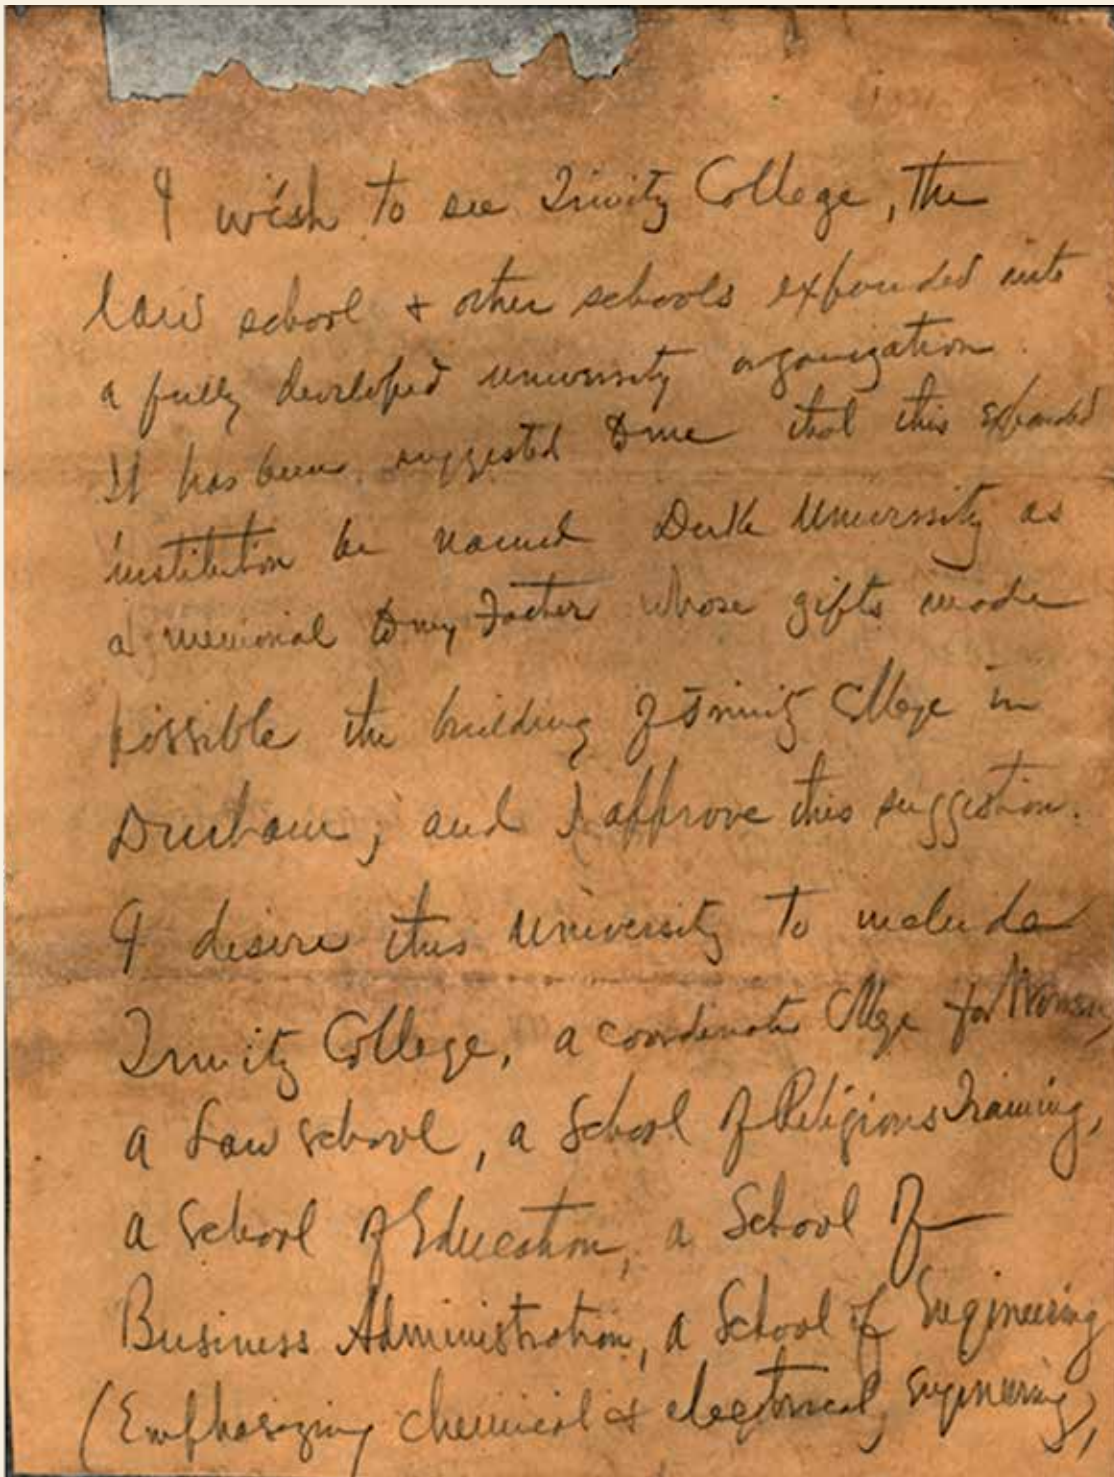 I wish to see Trinity College, the
law school & other schools expanded into
a fully developed university organization.
It has been suggested to me that this expanded
institution be named Duke University as
a memorial to my Father whose gifts made
possible the building of Trinity College in
Durham, and I approve this suggestion.
I desire this University to include
Trinity College, a coordinate College for Women,
a Law School, a School of Religious Training,
a School of Education, a School of
Business Administration, a School of Engineering
(Emphasizing chemical & electrical engineering),